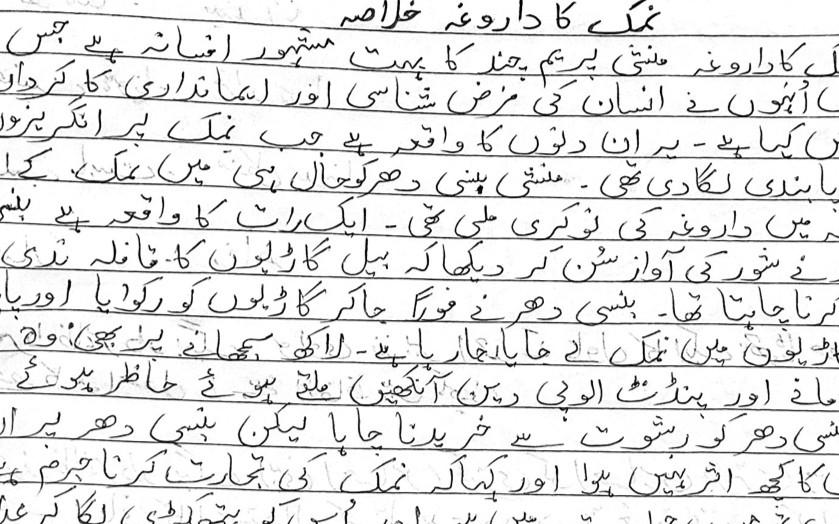 نمک کا داروغہ خلاصہ
کا داروغہ منشی پریم چند کا بہت مشہور افسانہ ہے جس
اُنہوں نے انسان کی فرض شناسی اور ایمانداری کا کردار
کیا ہے - یہ ان دنوں کا واقعہ ہے جب نمک پر انگریزوں
پابندی لگادی تھی - منشی بنسی دھر کو حال ہی میں نمک کے
میں داروغہ کی نوکری ملی تھی - ایک رات کا واقعہ ہے
نے شور کی آواز سُن کر دیکھا کہ بیل گاڑیوں کا قافلہ ندی
کرنا چاہتا تھا - بنسی دھر نے فوراً جاکر گاڑیوں کو رکوایا اور
گاڑیوں میں نمک لے جایا جارہا ہے - لاکھ سمجھانے پر بھی وہ
مانے اور پنڈٹ الوپی دین آنکھیں ملتے ہوئے حاظر ہوئے
دھر کو رشوت سے خریدنا چاہا لیکن بنسی دھر پر
کا کچھ اثر نہیں ہوا اور کہا کہ نمک کی تجارت کرنا جرم
کو ہتھکڑی لگا کر